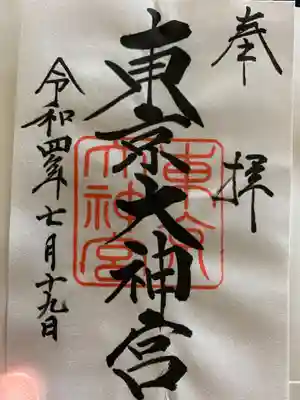 奉拝
東京大神宮
東京大神宮
令和四年七月十九日